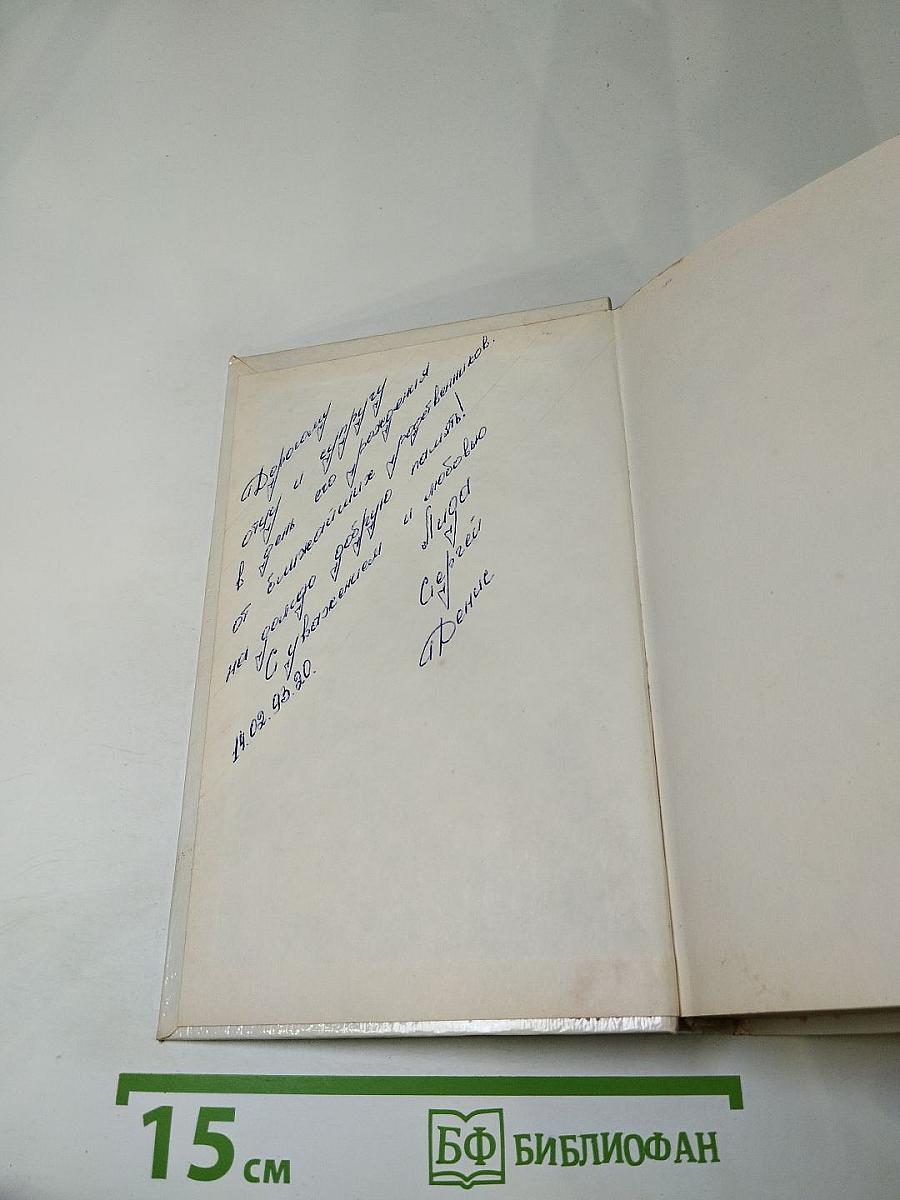 Дорогому
отцу и супругу
в день его рождения
от ближайших родственников.
на долгую добрую память!
С уважением и любовью
Лида
Сергей
Денис
14.02.93.20.
15 см
БФ БИБЛИОФАН